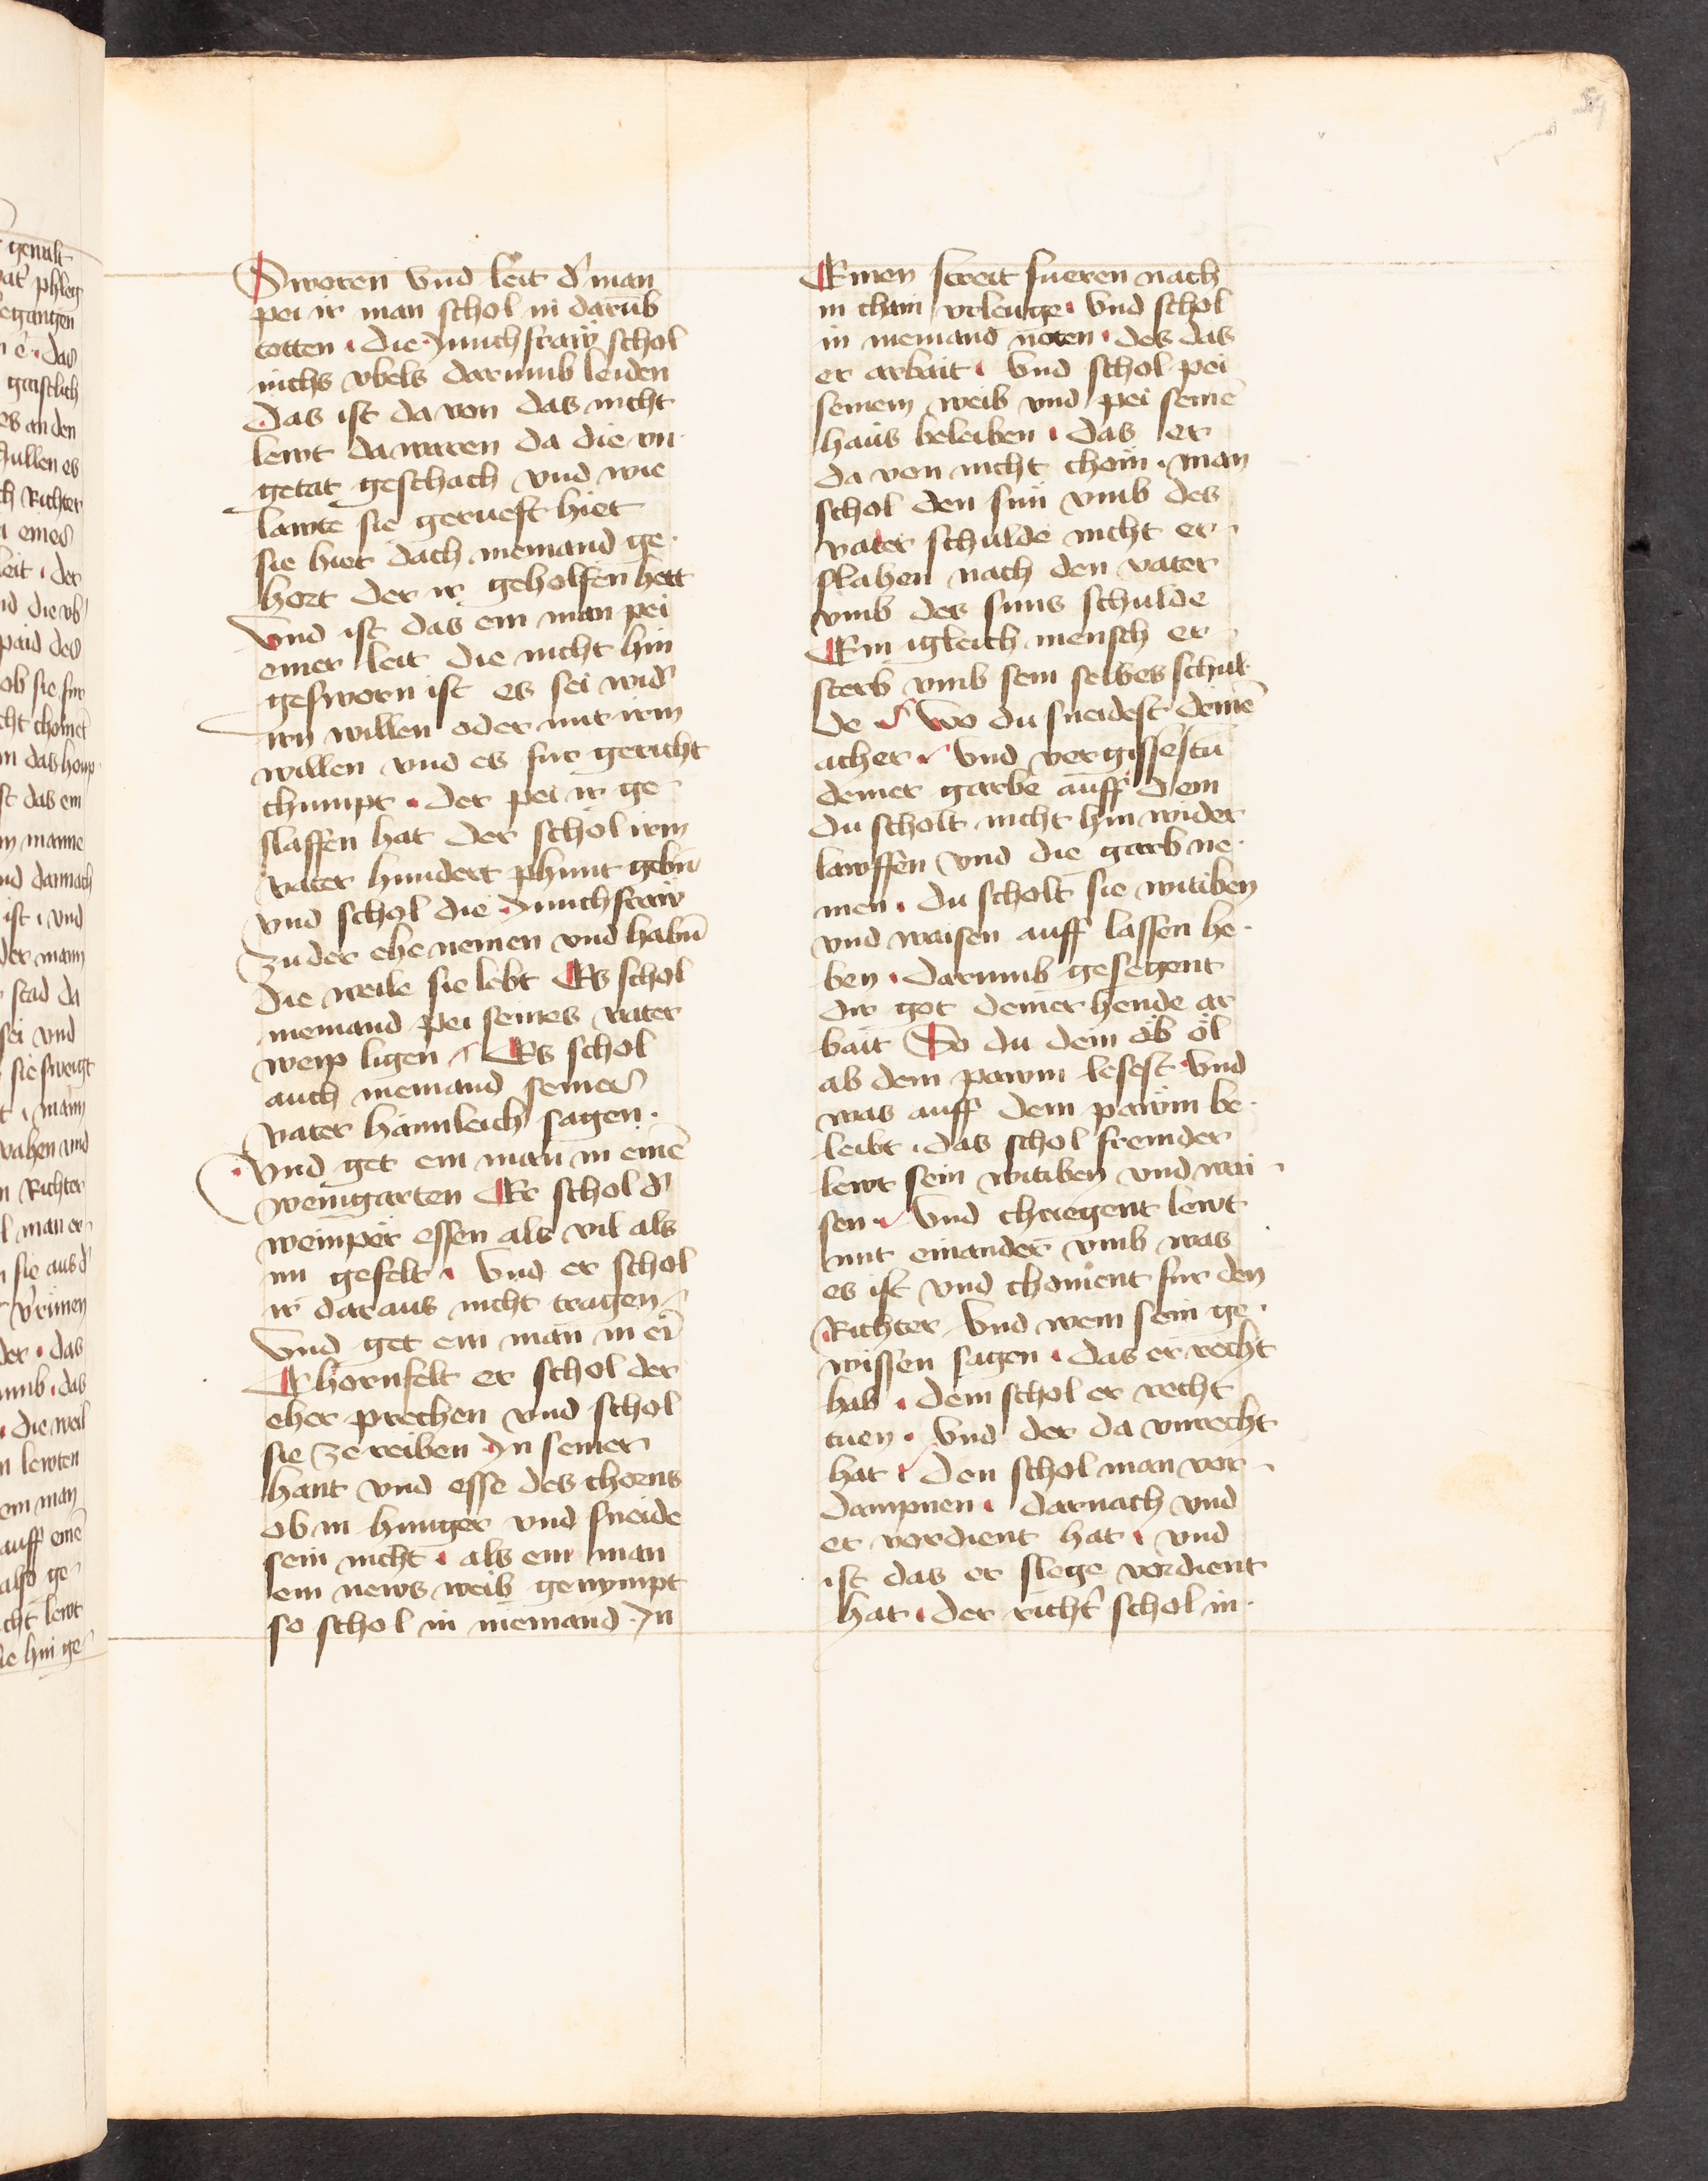 Sworen vnd leit d' man
pei ir man schol in darūb
totten · die Junchfraw schol
nichs vbels darumb leiden
Das ist da von das nicht
lewt da waren da die vn-
getat geschach vnd wie
lawte sie gerueft hiet
sie hiet dach niemand ge-
hort der ir geholfen hett
Vnd ist das ein man pei
einer leit die nicht hin
gesworn ist es sei wid'
irn willen oder mit irm
willen vnd es fur gericht
chumpt · der pei ir ge-
slaffen hat der schol irm
vater hundert phunt gebn̄
vnd schol die Junchfraw
zu der ehe nemen vnd habn̄
die weile sie lebt Es schol
niemand pei seines vater
weip ligen Es schol
auch niemand seiner
vater haimleich sagen ·
Vnd get ein man in einē
weingarten Er schol d'
weinper essen als vil als
im gefelt · Vnd er schol
ir daraus nicht tragen
Vnd get ein man in eī
Chornfelt er schol der
eher prechen vnd schol
sie zereiben In seiner
hant vnd esse des chorns
ob in hunger vnd sneide
sein nicht · als ein man
ein news weib genympt
so schol in niemand In
Einen streit fueren nach
in chain vrleuge · Vnd schol
in niemand noten · des das
er arbait · Vnd schol pei
seinem weib vnd pei seinē
haus beleiben · das er
da von nicht chom · man
schol den sun vmb des
vater schulde nicht er-
slahen nach den vater
vmb des suns schulde
Ein igleich mensch er-
sterb vmb sein selbes schul-
de · Wo du sneidest deinē
acher · Vnd vergissestu
deiner garbe auff dem
du scholt nicht hin wider
lawffen vnd die garb ne-
men · du scholt sie witiben
vnd waisen auff lassen he-
ben · darumb gesegent
dir got deiner hende ar
bait So du dein ob öl
ab dem pawm lesest Vnd
was auff dem pawm be-
leibt · das schol fremder
lewt sein witiben vnd wai-
sen · Vnd chriegent lewt
mit einander vmb was
es ist vnd choment fur den
Richter Vnd wem sein ge-
wissen sagen · das er recht
hab · dem schol er recht
tuen · Vnd der da vnrecht
hat · den schol man vor-
dampnen · darnach vnd
er verdient hat · vnd
ist das er slege verdient
hat · der richt' schol in